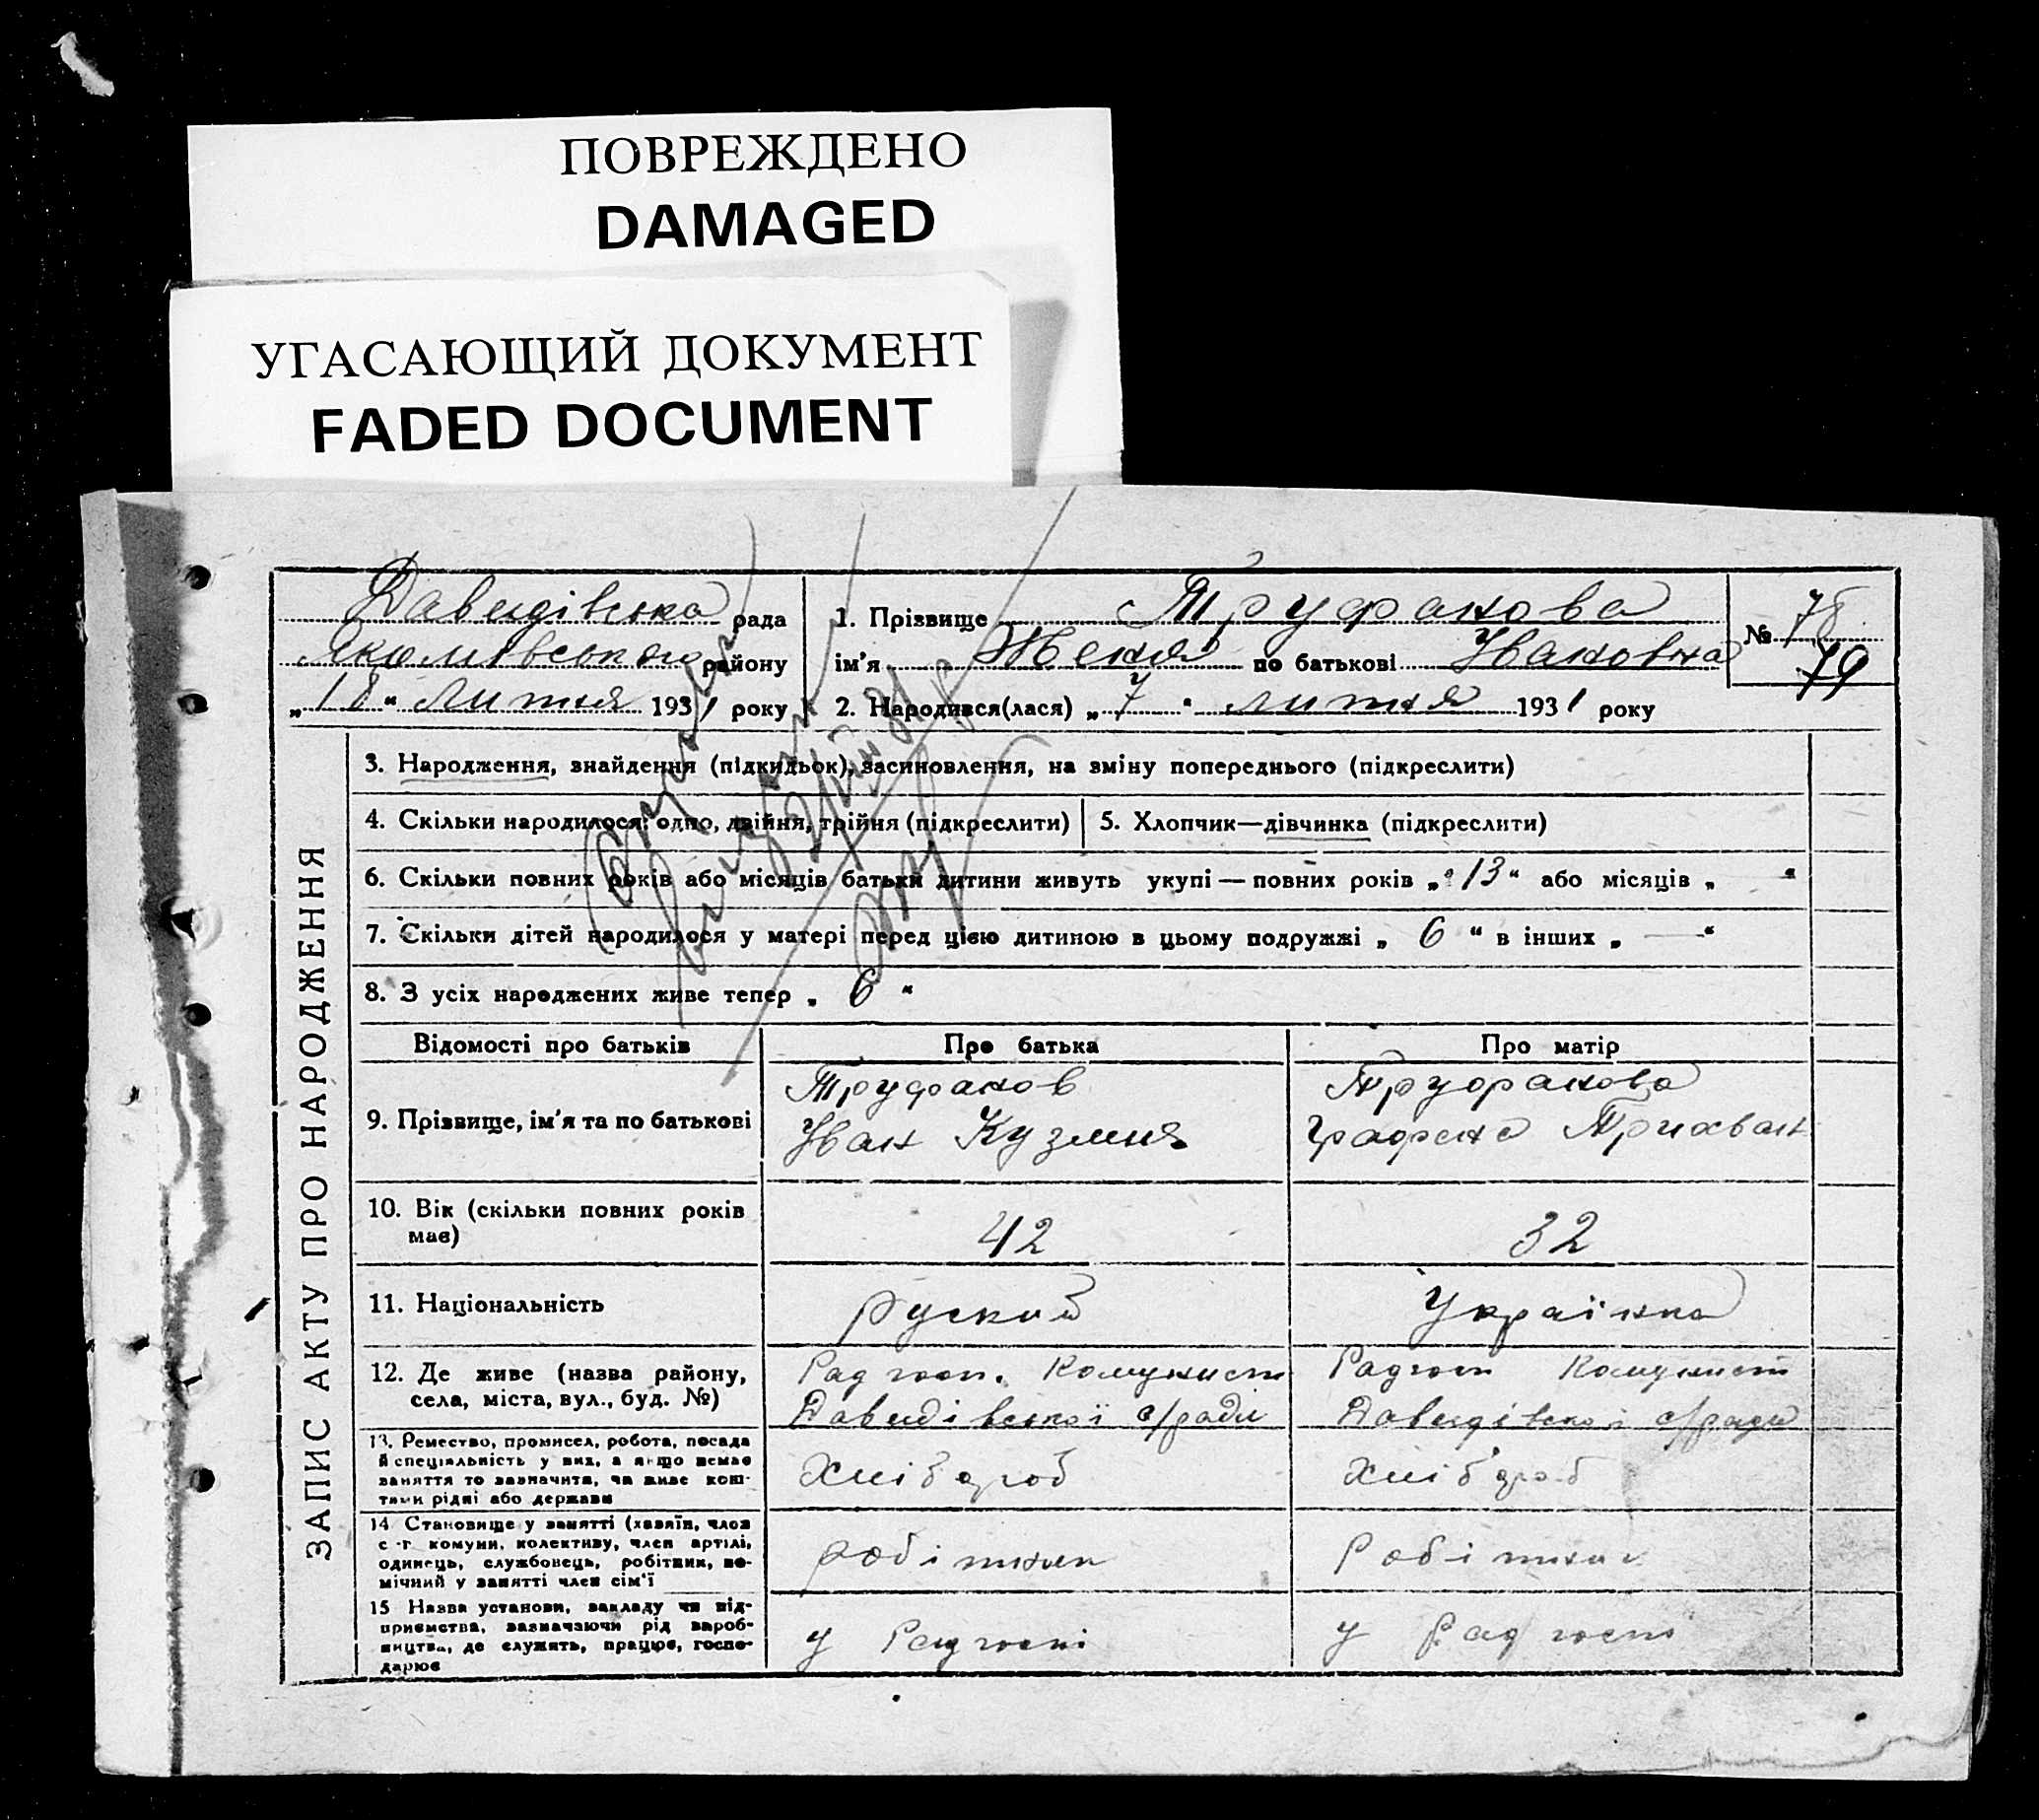 ПОВРЕЖДЕНО
DAMAGED
УГАСАЮЩИЙ ДОКУМЕНТ
FADED DOCUMENT
Давидівська рада
Якимівського району
„18“ Лютня 1931 року
1. Прізвище Труфанова
ім'я Женя по батькові Ивановна
2. Народився(лася) „7“ лютня 1931 року
№ 78
79
ЗАПИС АКТУ ПРО НАРОДЖЕННЯ
3. Народження, знайдення (підкидьок), засиновлення, на зміну попереднього (підкреслити)
4. Скільки народилося: одно, двійня, трійня (підкреслити)
5. Хлопчик—дівчинка (підкреслити)
6. Скільки повних років або місяців батьки дитини живуть укупі — повних років „13“ або місяців „ “
7. Скільки дітей народилося у матері перед цією дитиною в цьому подружжі „ 6 “ в інших „ — “
8. З усіх народжених живе тепер „ 6 “
Відомості про батьків
Про батька
Про матір
9. Прізвище, ім'я та по батькові
Труфанов
Иван Кузмич
Труфанова
10. Вік (скільки повних років
має)
42
32
11. Національність
Руский
Українка
12. Де живе (назва району,
села, міста, вул., буд. №)
Радгосп. Комунист
Давидівської с/ради
Радгосп Комунист
Давидівської с/ради
13. Ремество, промисел, робота, посада
й спеціальність у них, а якщо немає
заняття то зазначити, чи живе кош-
тами рідні або держави
Хліборob
Хліборob
14. Становище у занятті (хазяїн, член
с.-г. комуни, колективу, член артілі,
одинець, службовець, робітник, по-
мічний у занятті член сім'ї
робітник
Робітник
15. Назва установи, закладу чи під-
приємства, зазначаючи рід вироб-
ництва, де служить, працює, госпо-
дарює
у Радгоспі
у Радгоспі